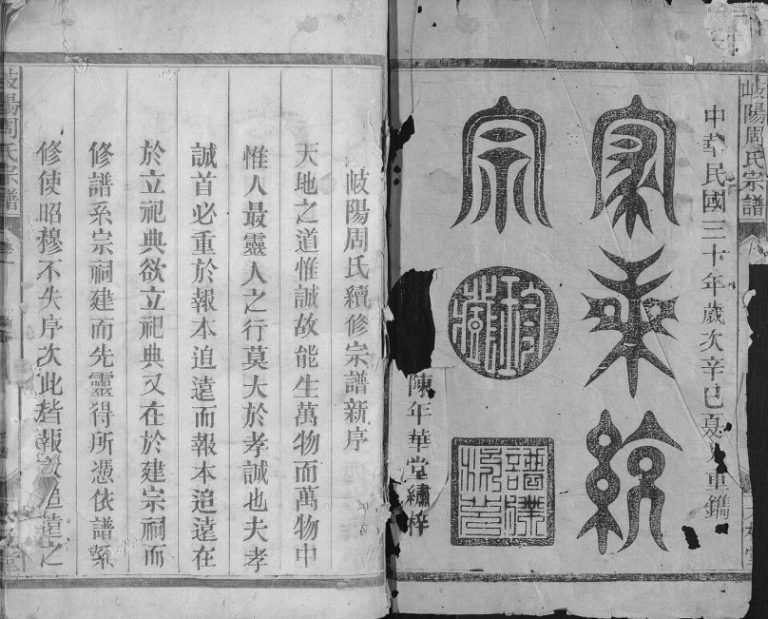 岐陽周氏宗譜
中華民國三十年歲次辛巳夏重鐫
家乘統
宗
陳年華堂繡梓
岐陽周氏續修宗譜新序
天地之道惟誠故能生萬物而萬物中
惟人最靈人之行莫大於孝誠也夫孝
誠首必重於報本追遠而報本追遠在
於立祀典欲立祀典又在於建宗祠而
修譜系宗祠建而先靈得所憑依譜系
修使昭穆不失序次此皆報追遠之
岐陽周氏宗譜